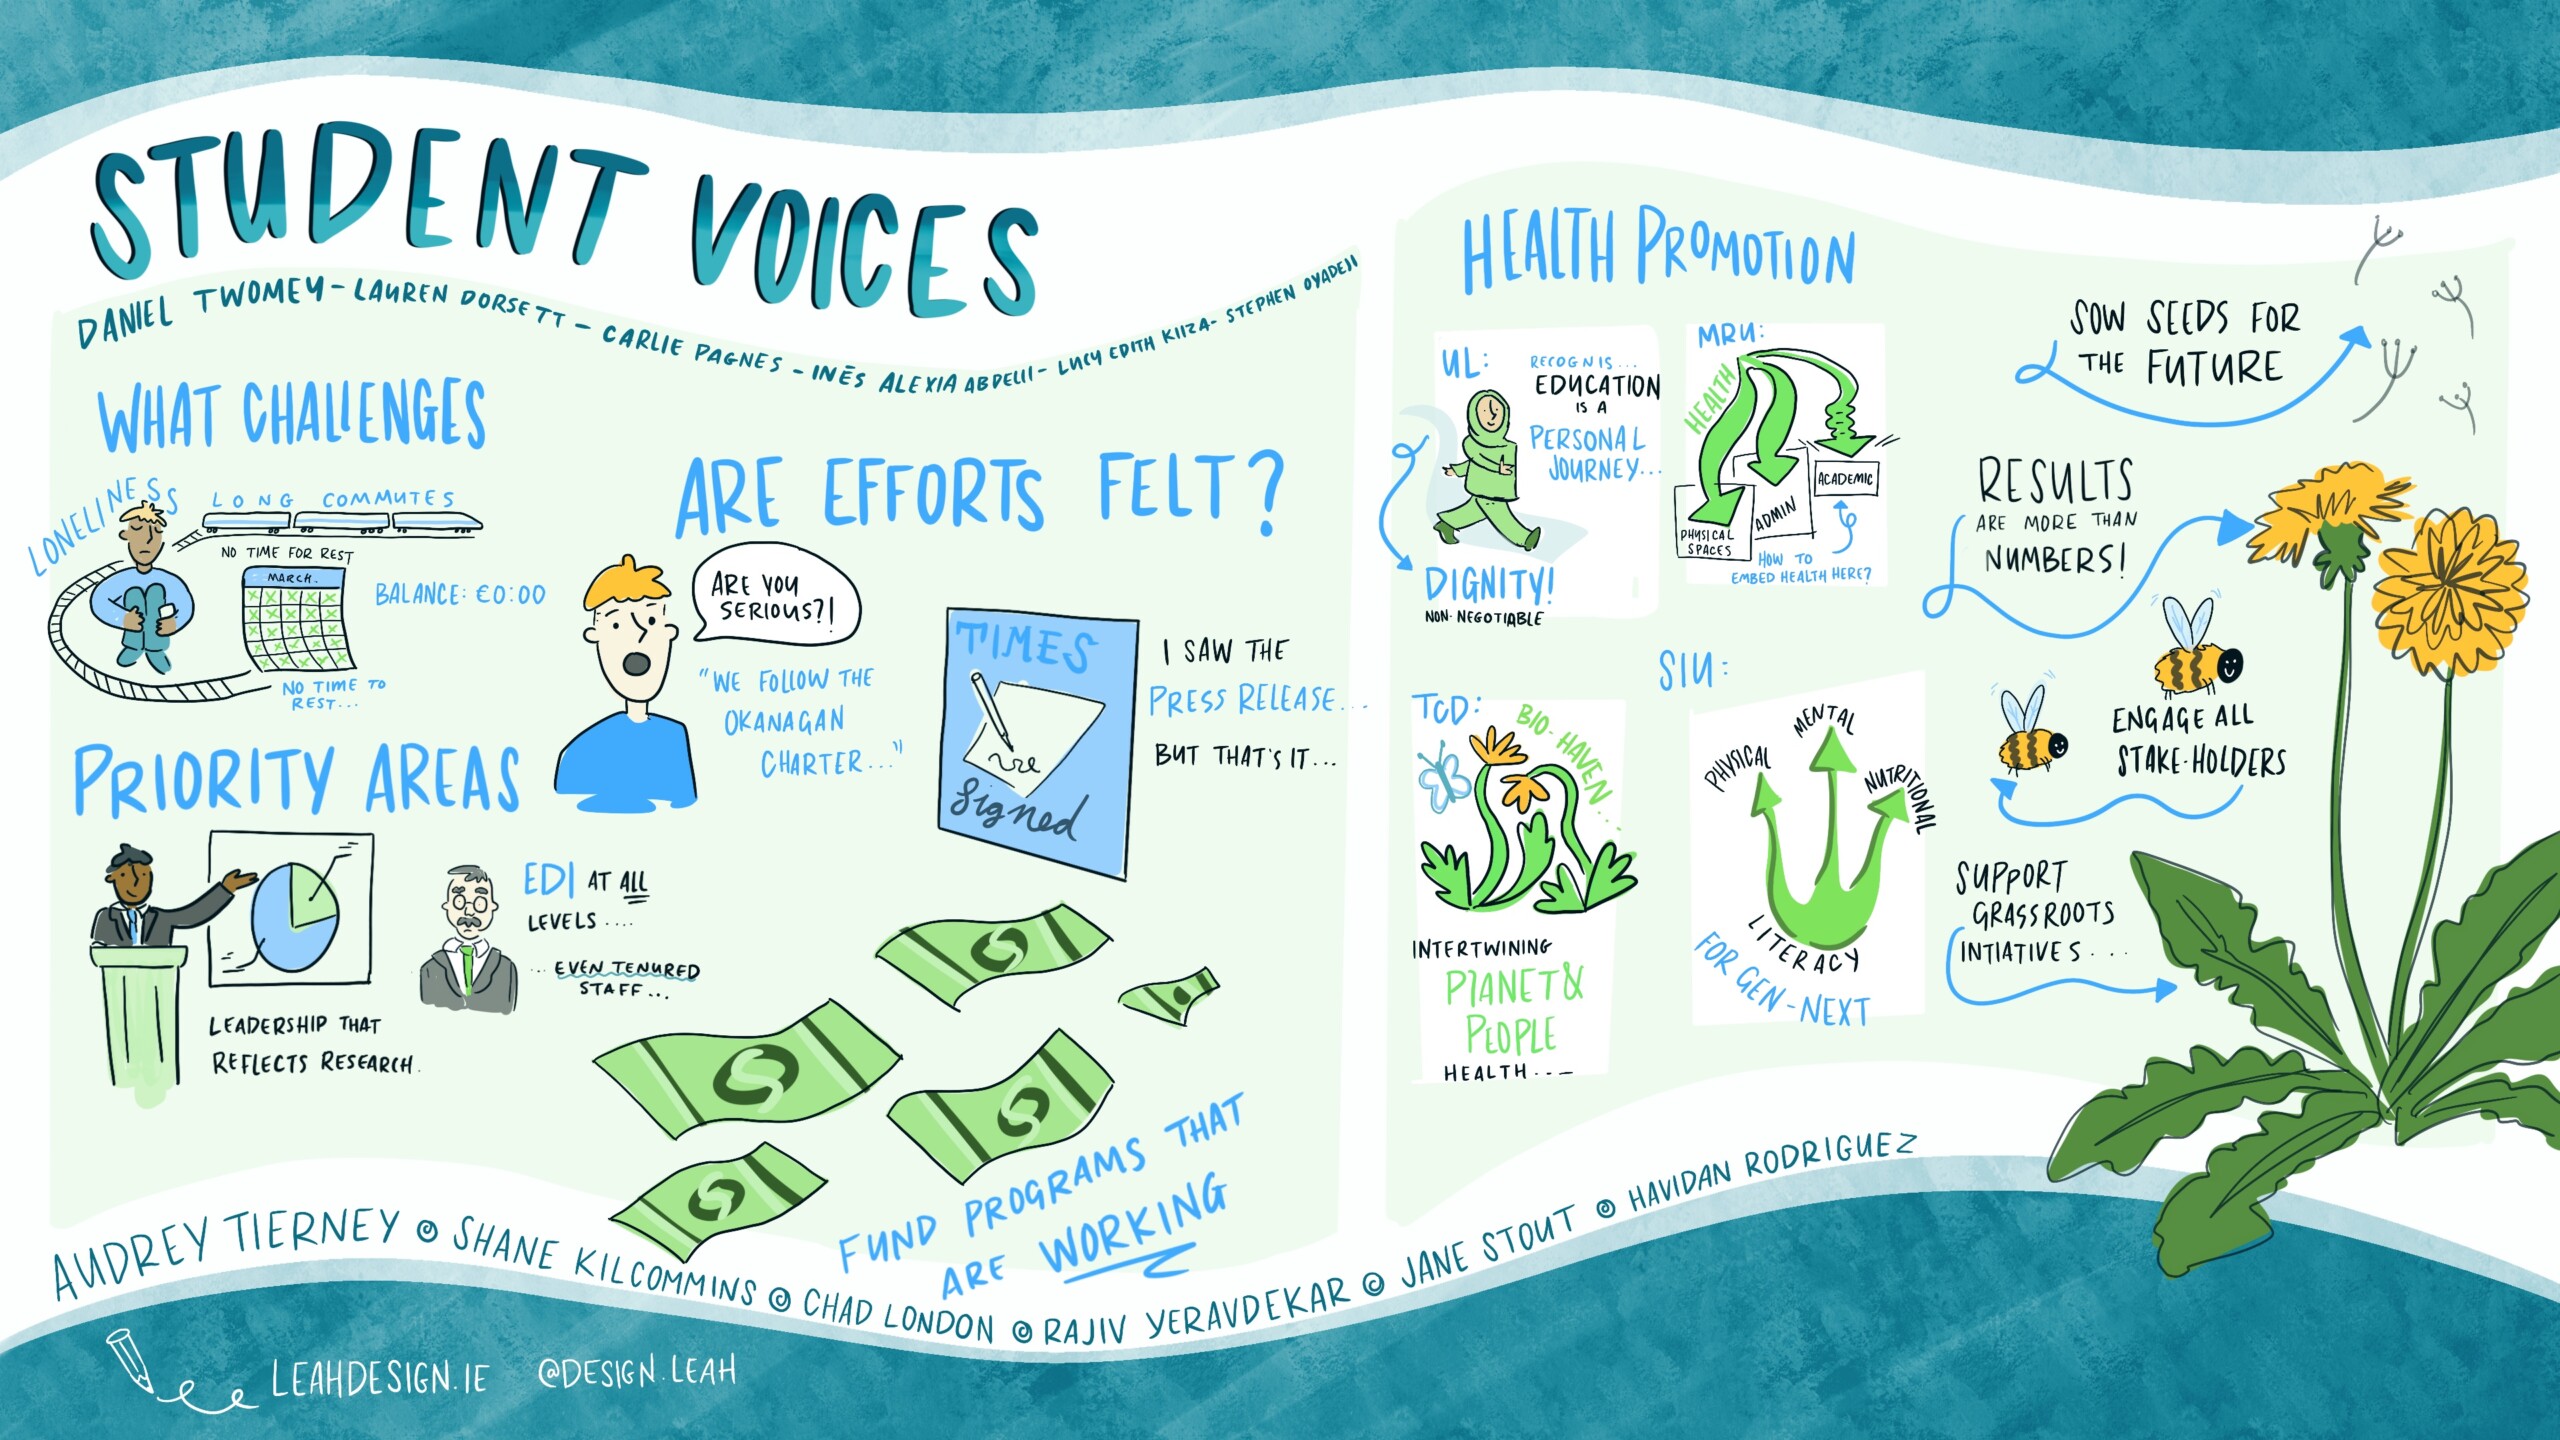 STUDENT VOICES
DANIEL TWOMEY - LAUREN DORSETT - CARLIE PAGNES - INĒS ALEXIA ABDELII - LUCY EDITH KIIZA - STEPHEN OYADEJI
WHAT CHALLENGES
LONELINESS
LONG COMMUTES
NO TIME FOR REST
MARCH.
BALANCE: €0:00
NO TIME TO
REST...
ARE EFFORTS FELT?
ARE YOU
SERIOUS?!
"WE FOLLOW THE
OKANAGAN
CHARTER..."
TIMES
Signed
I SAW THE
PRESS RELEASE...
BUT THAT'S IT...
PRIORITY AREAS
LEADERSHIP THAT
REFLECTS RESEARCH.
EDI AT ALL
LEVELS ....
... EVEN TENURED
STAFF...
FUND PROGRAMS THAT
ARE WORKING
HEALTH PROMOTION
UL:
RECOGNIS...
EDUCATION
IS A
PERSONAL
JOURNEY...
DIGNITY!
NON-NEGOTIABLE
MRU:
HEALTH
PHYSICAL
SPACES
ADMIN
ACADEMIC
HOW TO
EMBED HEALTH HERE?
TCD:
BIO-HAVEN...
INTERTWINING
PLANET &
PEOPLE
HEALTH...
SIU:
PHYSICAL
MENTAL
NUTRITIONAL
LITERACY
FOR GEN-NEXT
SOW SEEDS FOR
THE FUTURE
RESULTS
ARE MORE THAN
NUMBERS!
ENGAGE ALL
STAKE-HOLDERS
SUPPORT
GRASSROOTS
INTIATIVES...
AUDREY TIERNEY SHANE KILCOMMINS CHAD LONDON RAJIV YERAVDEKAR JANE STOUT HAVIDAN RODRIGUEZ
LEAHDESIGN.IE @DESIGN.LEAH